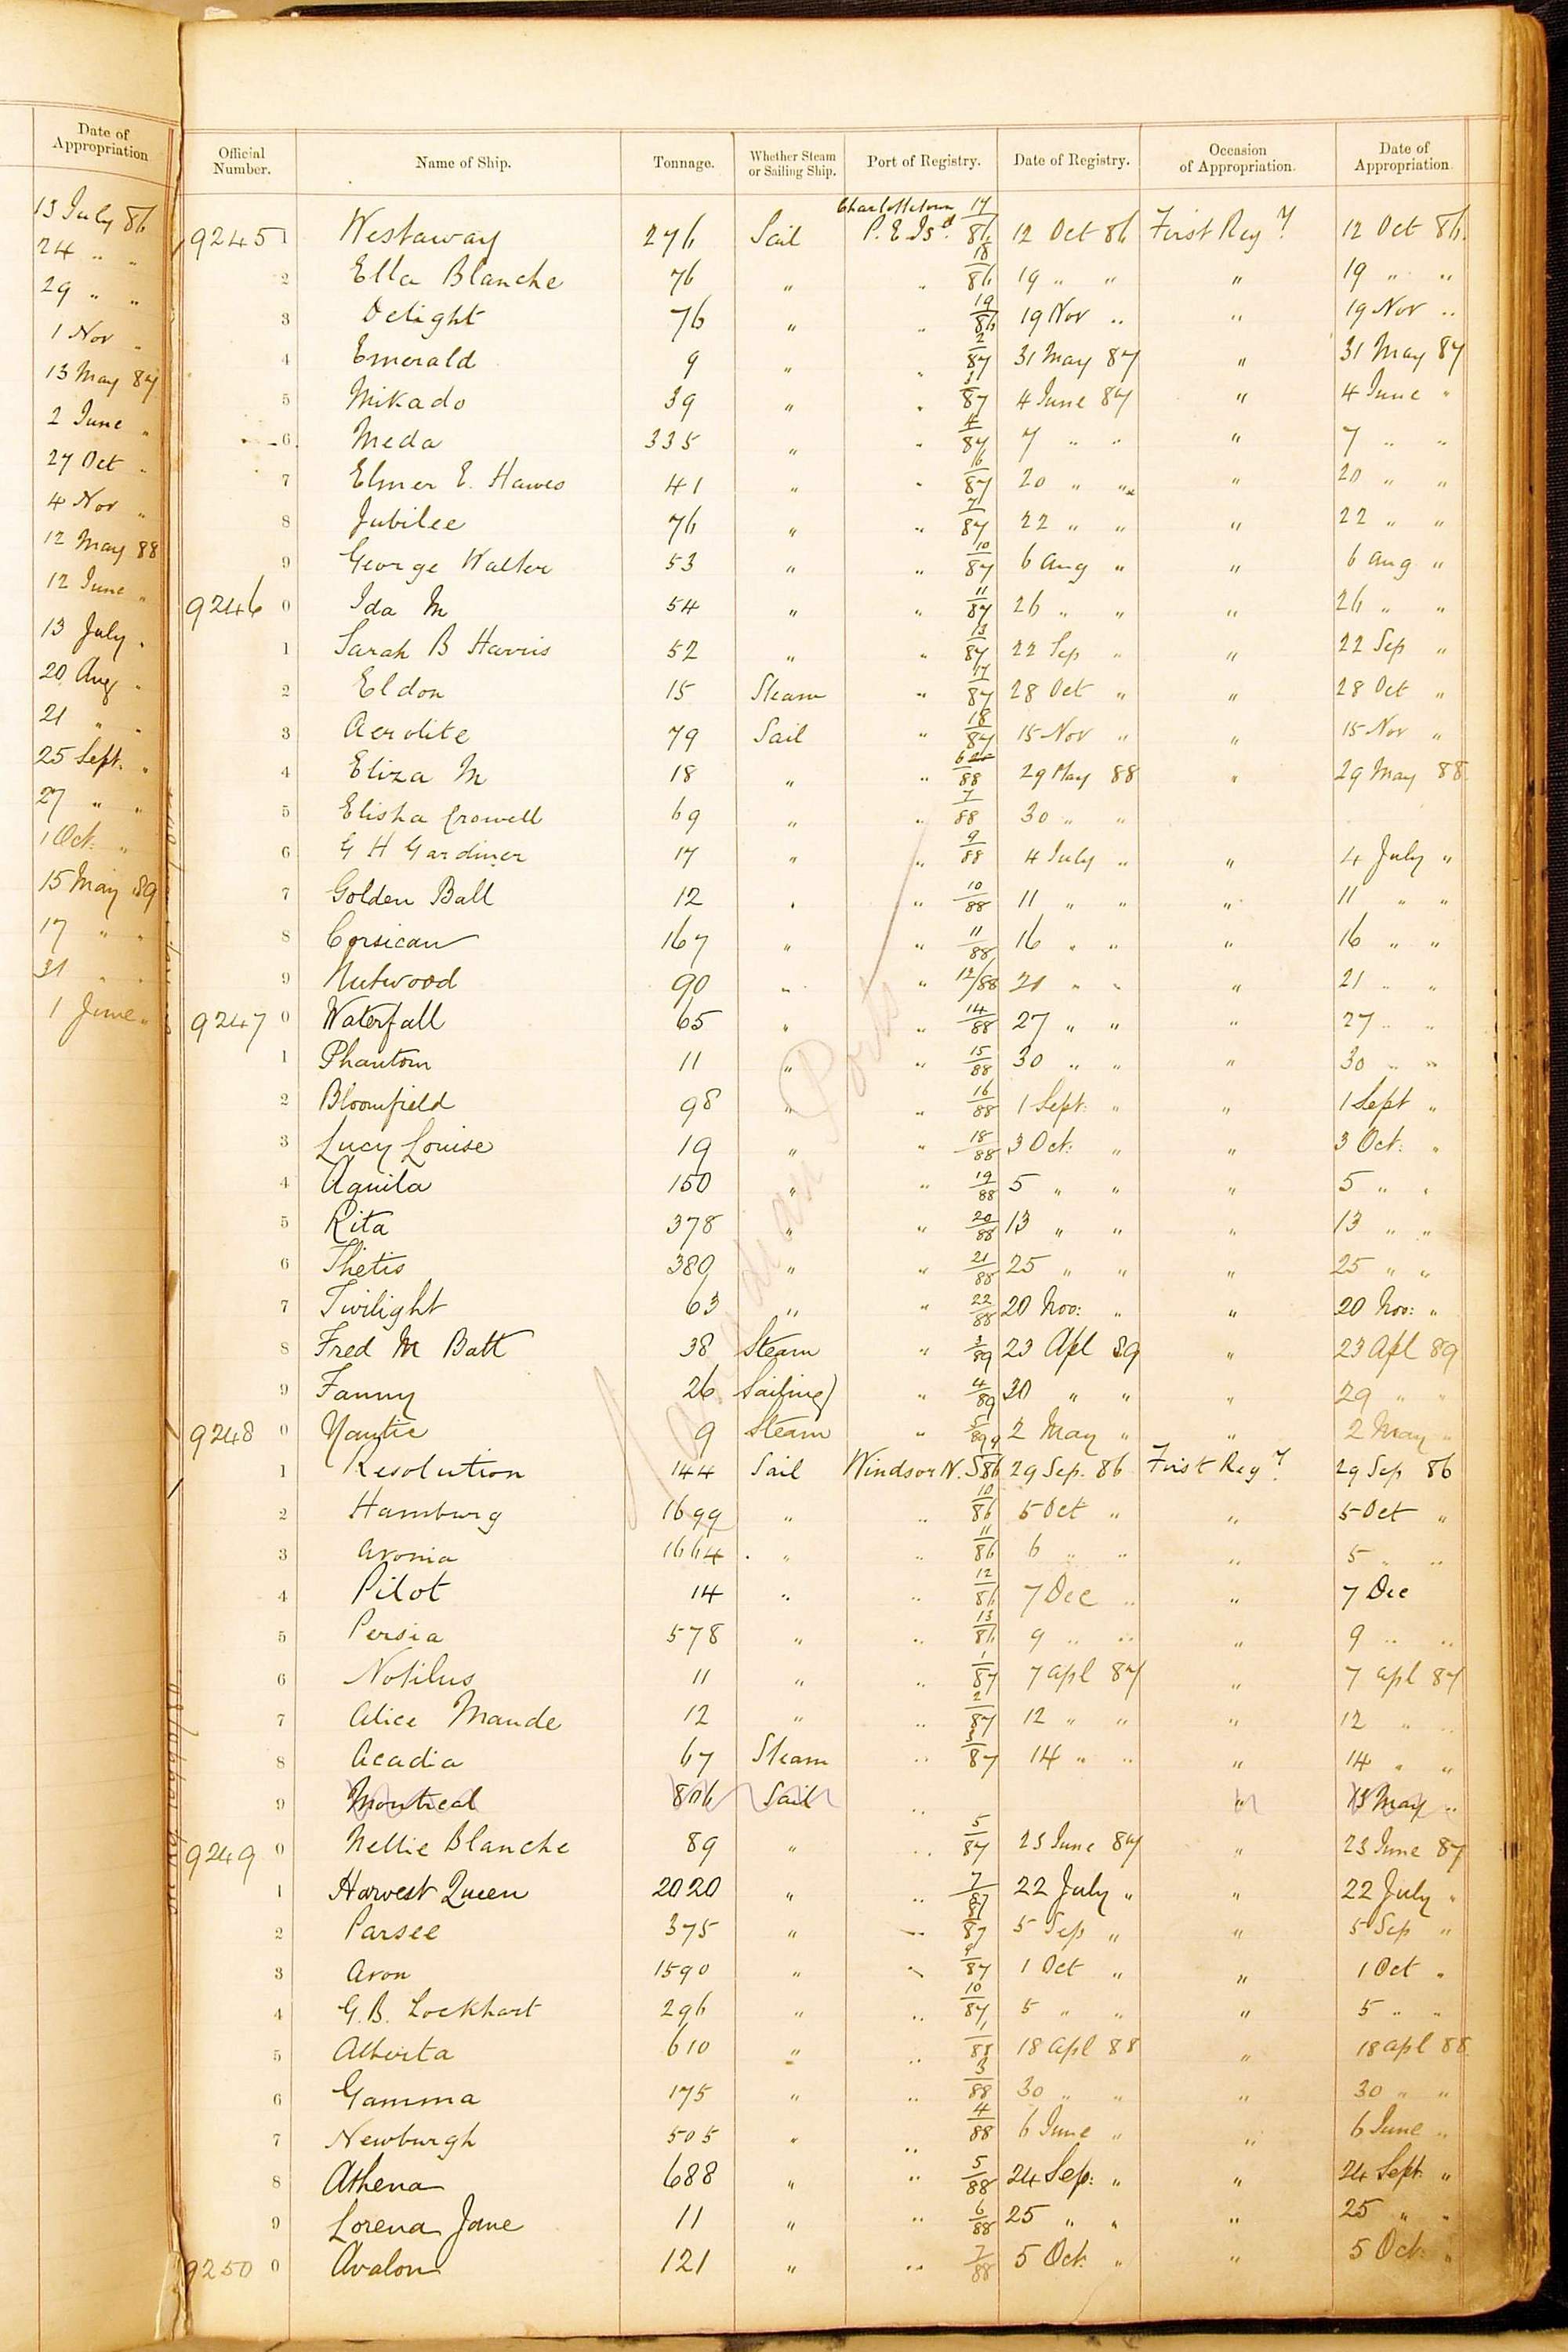 Date of
Appropriation
13 July 86
24 " "
29 " "
1 Nov "
13 May 87
2 June "
27 Oct "
4 Nov "
12 May 88
12 June "
13 July "
20 Aug "
21 " "
25 Sept. "
27 " "
1 Oct. "
15 May 89
17 " "
31 " "
1 June "
Official Number. Name of Ship. Tonnage. Whether Steam or Sailing Ship. Port of Registry. Date of Registry. Occasion of Appropriation. Date of Appropriation
92451 Westaway 276 Sail Charlottetown P. E. Isd. 17/86 12 Oct 86 First Regy. 12 Oct 86.
2 Ella Blanche 76 " " 18/86 19 " " " 19 " "
3 Delight 76 " " 19/86 19 Nov " " 19 Nov "
4 Emerald 9 " " 2/87 31 May 87 " 31 May 87
5 Mikado 39 " " 3/87 4 June 87 " 4 June "
6 Meda 335 " " 4/87 7 " " " 7 " "
7 Elmer E. Hawes 41 " " 6/87 20 " " " 20 " "
8 Jubilee 76 " " 7/87 22 " " " 22 " "
9 George Walter 53 " " 10/87 6 Aug " " 6 Aug "
9246 0 Ida M 54 " " 11/87 26 " " " 26 " "
1 Sarah B Harris 52 " " 13/87 22 Sep " " 22 Sep "
2 Eldon 15 Steam " 17/87 28 Oct " " 28 Oct "
3 Aerolite 79 Sail " 18/87 15 Nov " " 15 Nov "
4 Eliza M 18 " " 6/88 29 May 88 " 29 May 88
5 Elisha Crowell 69 " " 7/88 30 " "
6 G H Gardiner 17 " " 9/88 4 July " " 4 July "
7 Golden Ball 12 " " 10/88 11 " " " 11 " "
8 Corsican 167 " " 11/88 16 " " " 16 " "
9 Nutwood 90 " " 12/88 21 " " " 21 " "
9247 0 Waterfall 65 " " 14/88 27 " " " 27 " "
1 Phantom 11 " " 15/88 30 " " " 30 " "
2 Bloomfield 98 " " 16/88 1 Sept. " " 1 Sept "
3 Lucy Louise 19 " " 18/88 3 Oct: " " 3 Oct: "
4 Aquila 150 " " 19/88 5 " " " 5 " "
5 Rita 378 " " 20/88 13 " " " 13 " "
6 Thetis 389 " " 21/88 25 " " " 25 " "
7 Twilight 63 " " 22/88 20 Nov: " " 20 Nov: "
8 Fred M Batt 38 Steam " 3/89 23 Apl 89 " 23 Apl 89
9 Fanny 26 Sailing " 4/89 " " " 29 " "
9248 0 Nautic 9 Steam " 5/89 2 May " " 2 May "
1 Resolution 144 Sail Windsor N.S 9/86 29 Sep. 86 First Regy. 29 Sep 86
2 Hamburg 1699 " " 10/86 5 Oct " " 5 Oct "
3 Avonia 1664 " " 11/86 6 " " " 5 " "
4 Pilot 14 " " 12/86 7 Dec " " 7 Dec
5 Persia 578 " " 13/86 9 " " " 9 " "
6 Notilus 11 " " 1/87 7 Apl 87 " 7 Apl 87
7 Alice Maude 12 " " 2/87 12 " " " 12 " "
8 Acadia 67 Steam " 3/87 14 " " " 14 " "
9 Montreal 806 Sail " " 13 May "
9249 0 Nellie Blanche 89 " " 5/87 23 June 87 " 23 June 87
1 Harvest Queen 2020 " " 7/87 22 July " " 22 July "
2 Parsee 375 " " 8/87 5 Sep " " 5 Sep "
3 Avon 1590 " " 9/87 1 Oct " " 1 Oct "
4 G.B. Lockhart 296 " " 10/87 5 " " " 5 " "
5 Alberta 610 " " 1/88 18 Apl 88 " 18 Apl 88
6 Gamma 175 " " 3/88 30 " " " 30 " "
7 Newburgh 505 " " 4/88 6 June " " 6 June "
8 Athena 688 " " 5/88 24 Sep: " " 24 Sept "
9 Lorena Jane 11 " " 6/88 25 " " " 25 " "
9250 0 Avalon 121 " " 7/88 5 Oct: " " 5 Oct: "
Canadian Ports